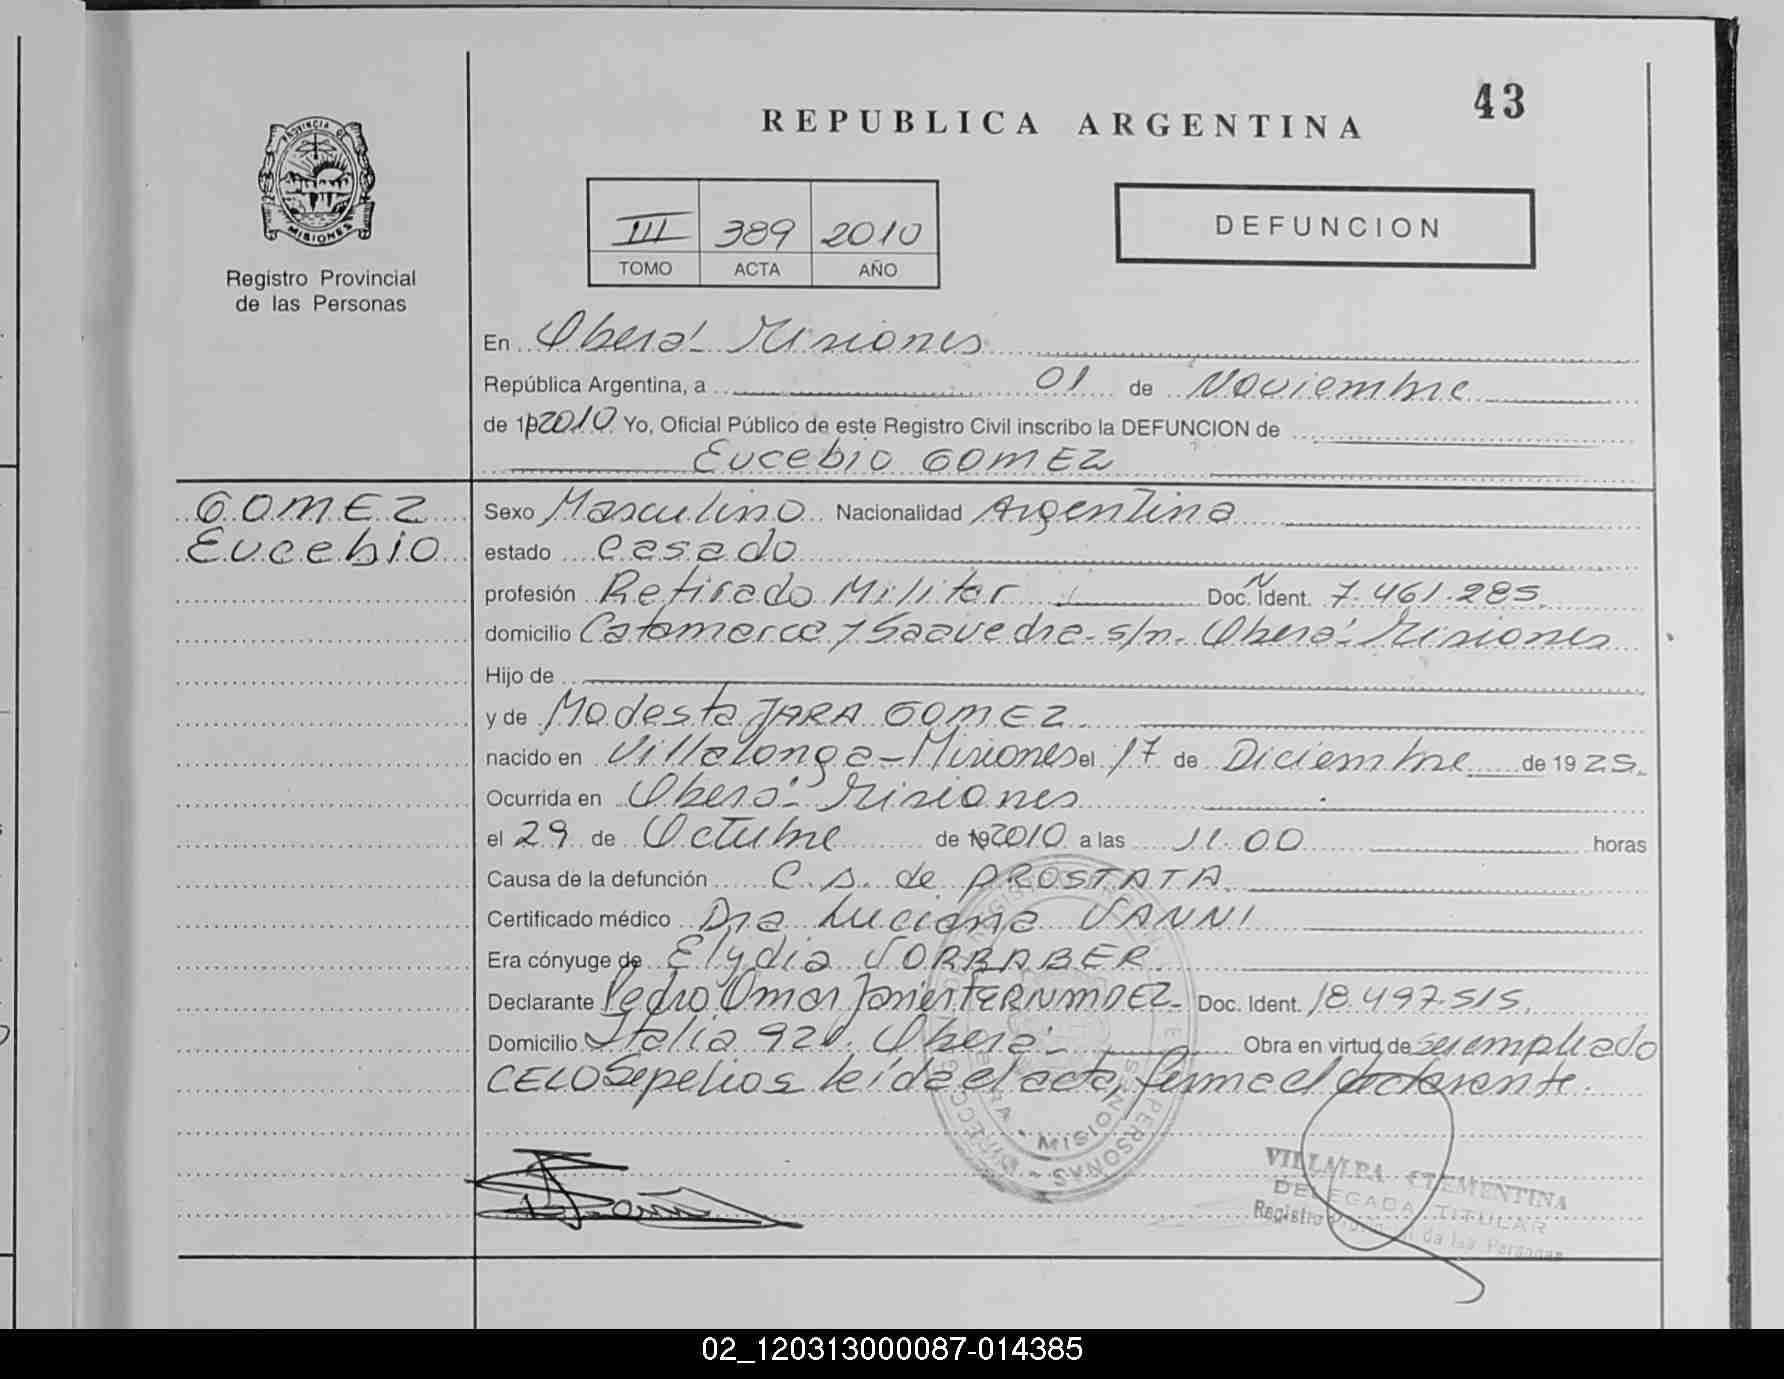 43
REPUBLICA ARGENTINA
PROVINCIA DE
MISIONES
Registro Provincial
de las Personas
III 389 2010
TOMO ACTA AÑO
DEFUNCION
En Oberá - Misiones
República Argentina, a 01 de Noviembre
de 19 2010 Yo, Oficial Público de este Registro Civil inscribo la DEFUNCION de
Eucebio GOMEZ
GOMEZ
Eucebio
Sexo Masculino Nacionalidad Argentina
estado Casado
profesión Retirado Militar Doc. Ident. N 7.461.285.
domicilio Catamarca y Saavedra - s/n - Oberá - Misiones
Hijo de
y de Modesta JARA GOMEZ
nacido en Villalonga - Misiones el 17 de Diciembre de 1925.
Ocurrida en Oberá - Misiones
el 29 de Octubre de 19 2010 a las 11.00 horas
Causa de la defunción C. A. de PROSTATA
Certificado médico Dra Luciana VANNI
Era cónyuge de Elydia
Declarante Pedro Omar Javier FERNANDEZ - Doc. Ident. 18.497.515.
Domicilio Italia 920. Oberá - Obra en virtud de ser empleado
CELO Sepelios leída el acta, firma el declarante.
MISIONES
PERSONAS
VILLALBA CLEMENTINA
DELEGADA TITULAR
Registro Provincial de las Personas
02_120313000087-014385